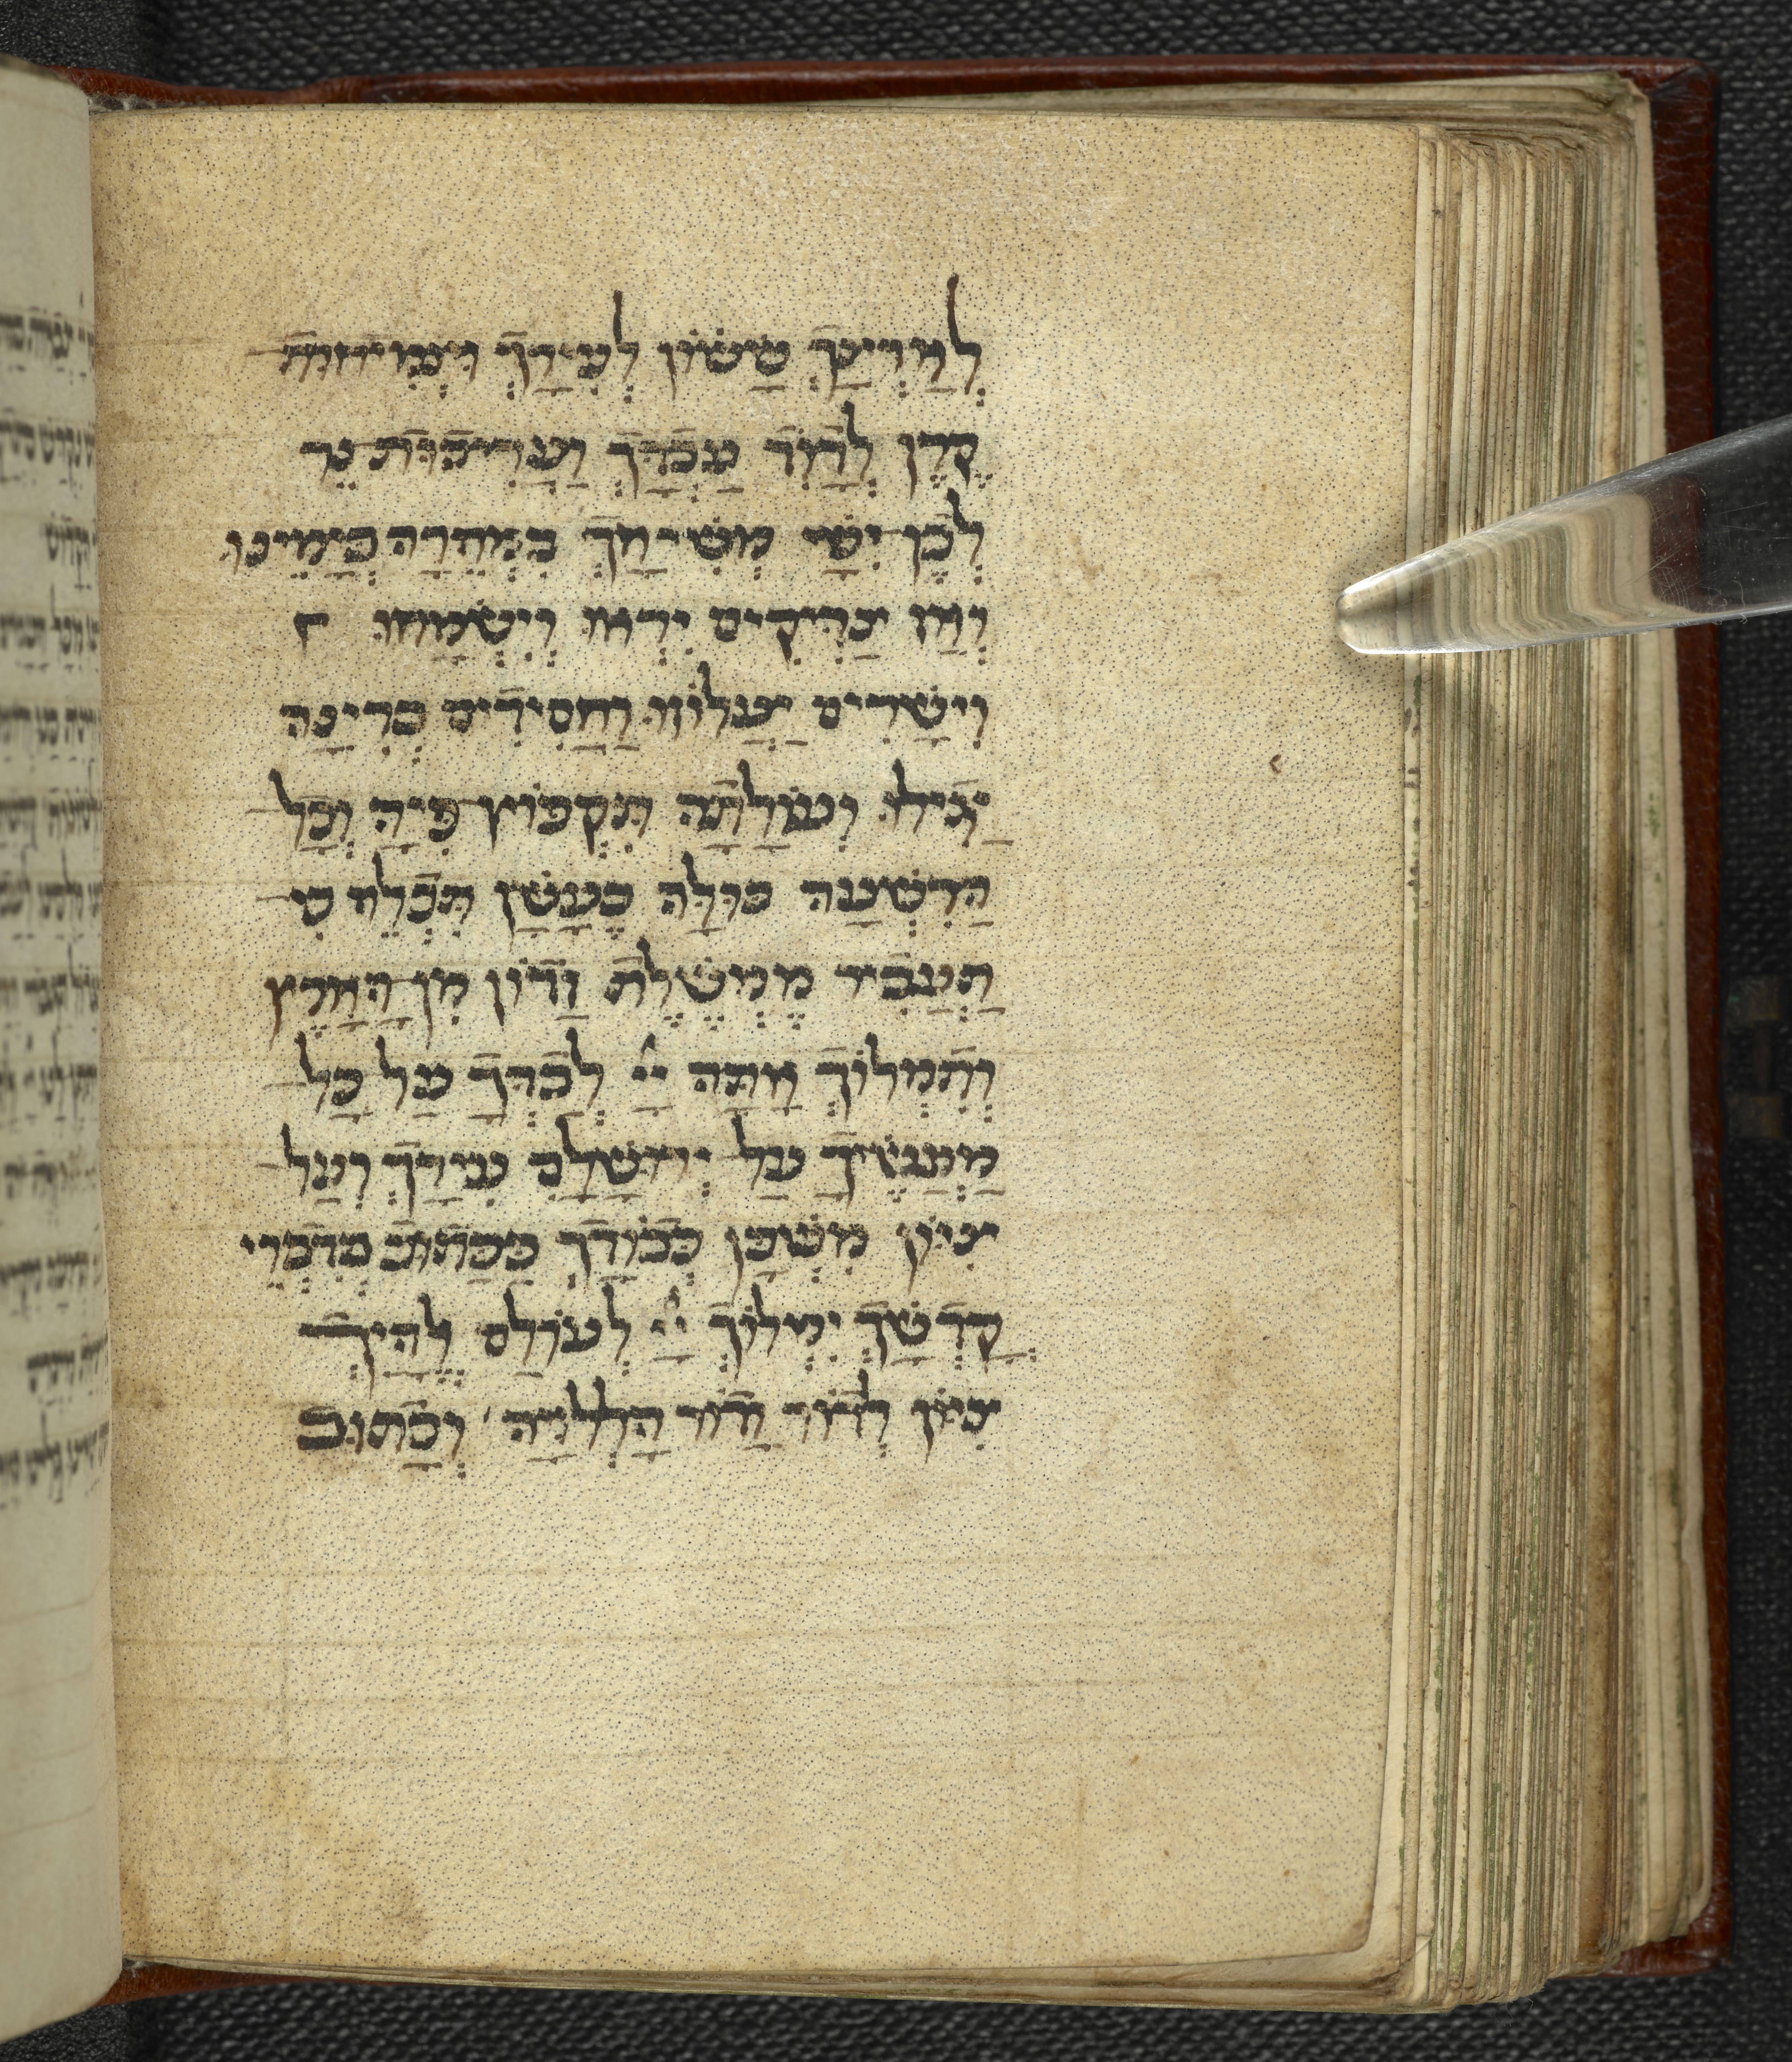 לְאַרְצָךְ שָׂשׂוֹן לְעִירָךְ וּצְמִיחַת
קֶרֶן לְדָוִד עַבְדָּךְ וַעֲרִיכַת נֵר
לְבֶן יִשַׁי מְשִׁיחָךְ בִּמְהֵרָה בְיָמֵינוּ
וְאָז צַדִּיקִים יִרְאוּ וְיִשְׂמָחוּ
וִישָׁרִים יַעֲלוֹזוּ וַחֲסִידִים בְּרִינָּה
יָגִילוּ וְעוֹלָתָה תִּקְפּוֹץ פִּיהָ וְכָל
הָרִשְׁעָה כּוּלָּהּ בֶּעָשָׁן תִּכְלֶה כִּי
תַעֲבִיר מֶמְשֶׁלֶת זָדוֹן מִן הָאָרֶץ
וְתִמְלוֹךְ אַתָּה יי לְבַדְּךָ עַל כָּל
מַעֲשֶׂיךָ עַל יְרוּשָׁלַם עִירָךְ וְעַל
צִיּוֹן מִשְׁכַּן כְּבוֹדָךְ כַּכָּתוּב בְּדִבְרֵי
קָדְשָׁךְ יִמְלוֹךְ יי לְעוֹלָם אֱלֹהַיִךְ
צִיּוֹן לְדוֹר וָדוֹר הַלְלוּיָהּ וְכָתוּב